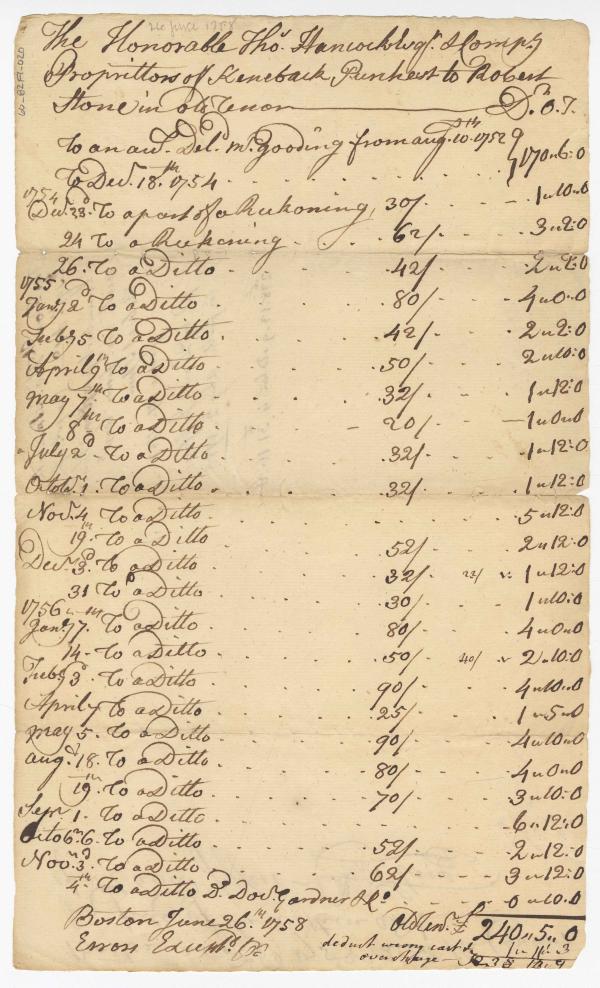 26 June 1758
60-8291-020
The Honorable Thos. Hancock Esqr. & Compy
Proprittors of Keneback Purches to Robert
Stone in old Tenor Dr. O.T.
To an acct. Deld. mr. Gooding from augt. 10th 1752
To Decr. 18th 1754 170"6:0
1754
Decr. 23d To a part of a Reckoning 30/ 1"10:0
24 To a Reckoning 62/ 3"2:0
26 To a Ditto 42/ 2"2:0
1755
Jany 2d To a Ditto 80/ 4"0"0
Feby 5 To a Ditto 42/ 2"2:0
April 9th To a Ditto 50/ 2"10:0
may 7th To a Ditto 32/ 1"12:0
8th To a Ditto 20/ 1"0"0
July 2d To a Ditto 32/ 1"12:0
Octobr. 1 To a Ditto 32/ 1"12:0
Novr. 4 To a Ditto 5"12:0
19th To a Ditto 52/ 2"12:0
Decr. 3d To a Ditto 32/ 1"12:0
31 To a Ditto 30/ 1"10:0
1756
Jany 7th To a Ditto 80/ 4"0"0
14 To a Ditto 50/ 40/ v 2"10:0
Feby 3d To a Ditto 90/ 4"10"0
April 7 To a Ditto 25/ 1"5"0
may 5 To a Ditto 90/ 4"10"0
augt 18 To a Ditto 80/ 4"0"0
19th To a Ditto 70/ 3"10:0
Sepr. 1 To a Ditto 6"12:0
Octobr. 6 To a Ditto 52/ 2"12:0
Novr. 3d To a Ditto 62/ 3"12:0
4th To a Ditto Dd. Docr. Gardner & Co 0"10.0
Boston June 26th 1758 Old Tenr. £ 240"5"0
Errors Excepted
deduct wrong cast &
overcharge